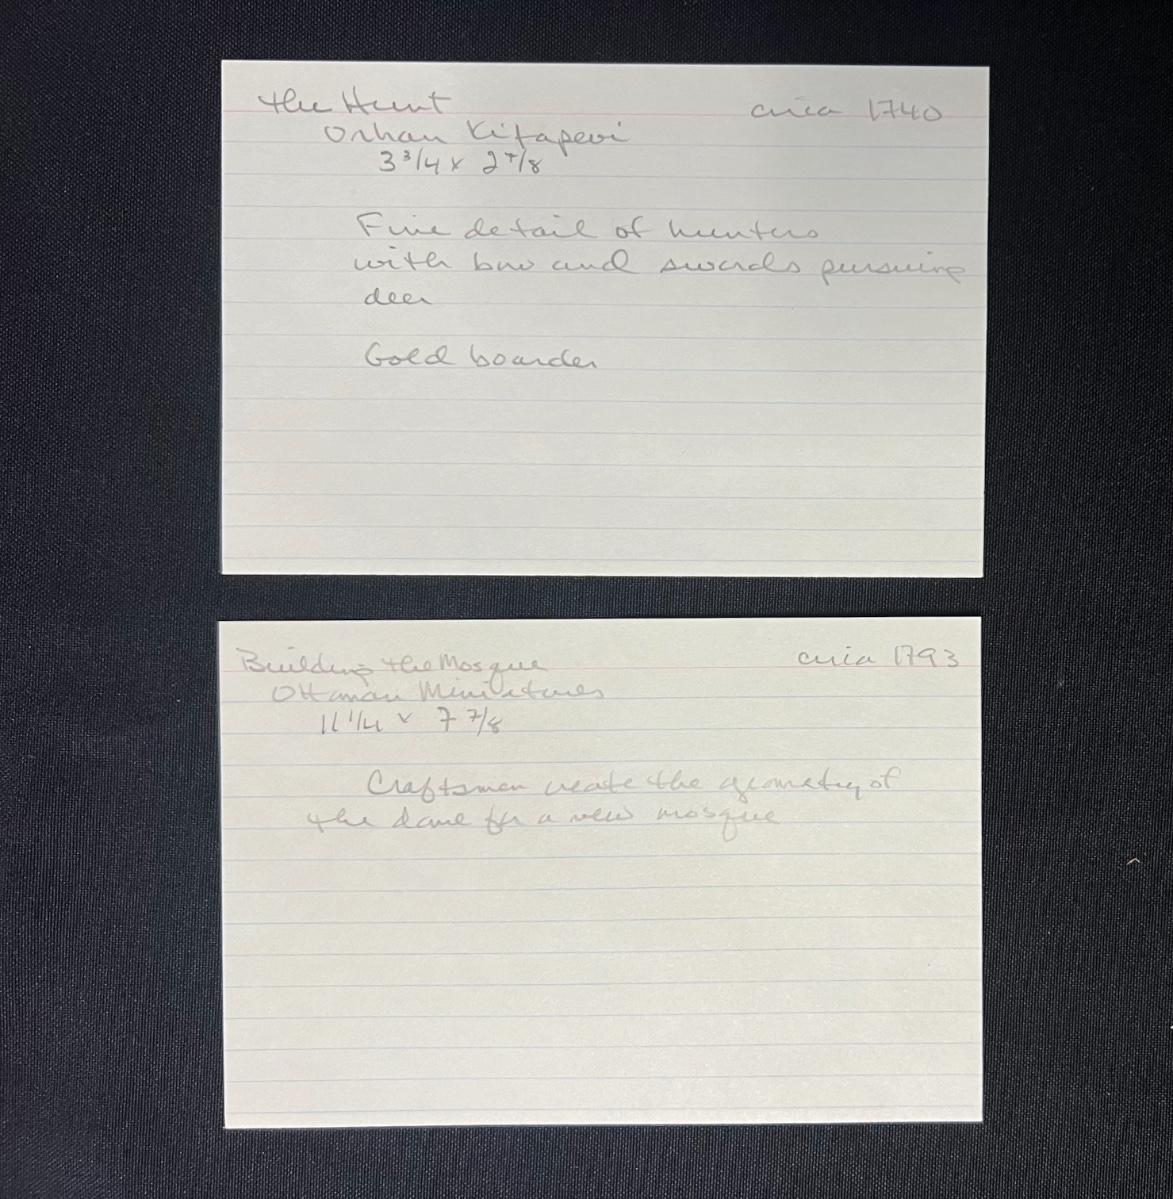 the Hunt circa 1740
Orhan Kitapevi
3 3/4 x 2 7/8
Fine detail of hunters
with bow and swords pursuing
deer
Gold boarder
Building the Mosque circa 1793
Ottoman Miniatures
11 1/4 x 7 7/8
Craftsmen create the geometry of
the dome for a new mosque